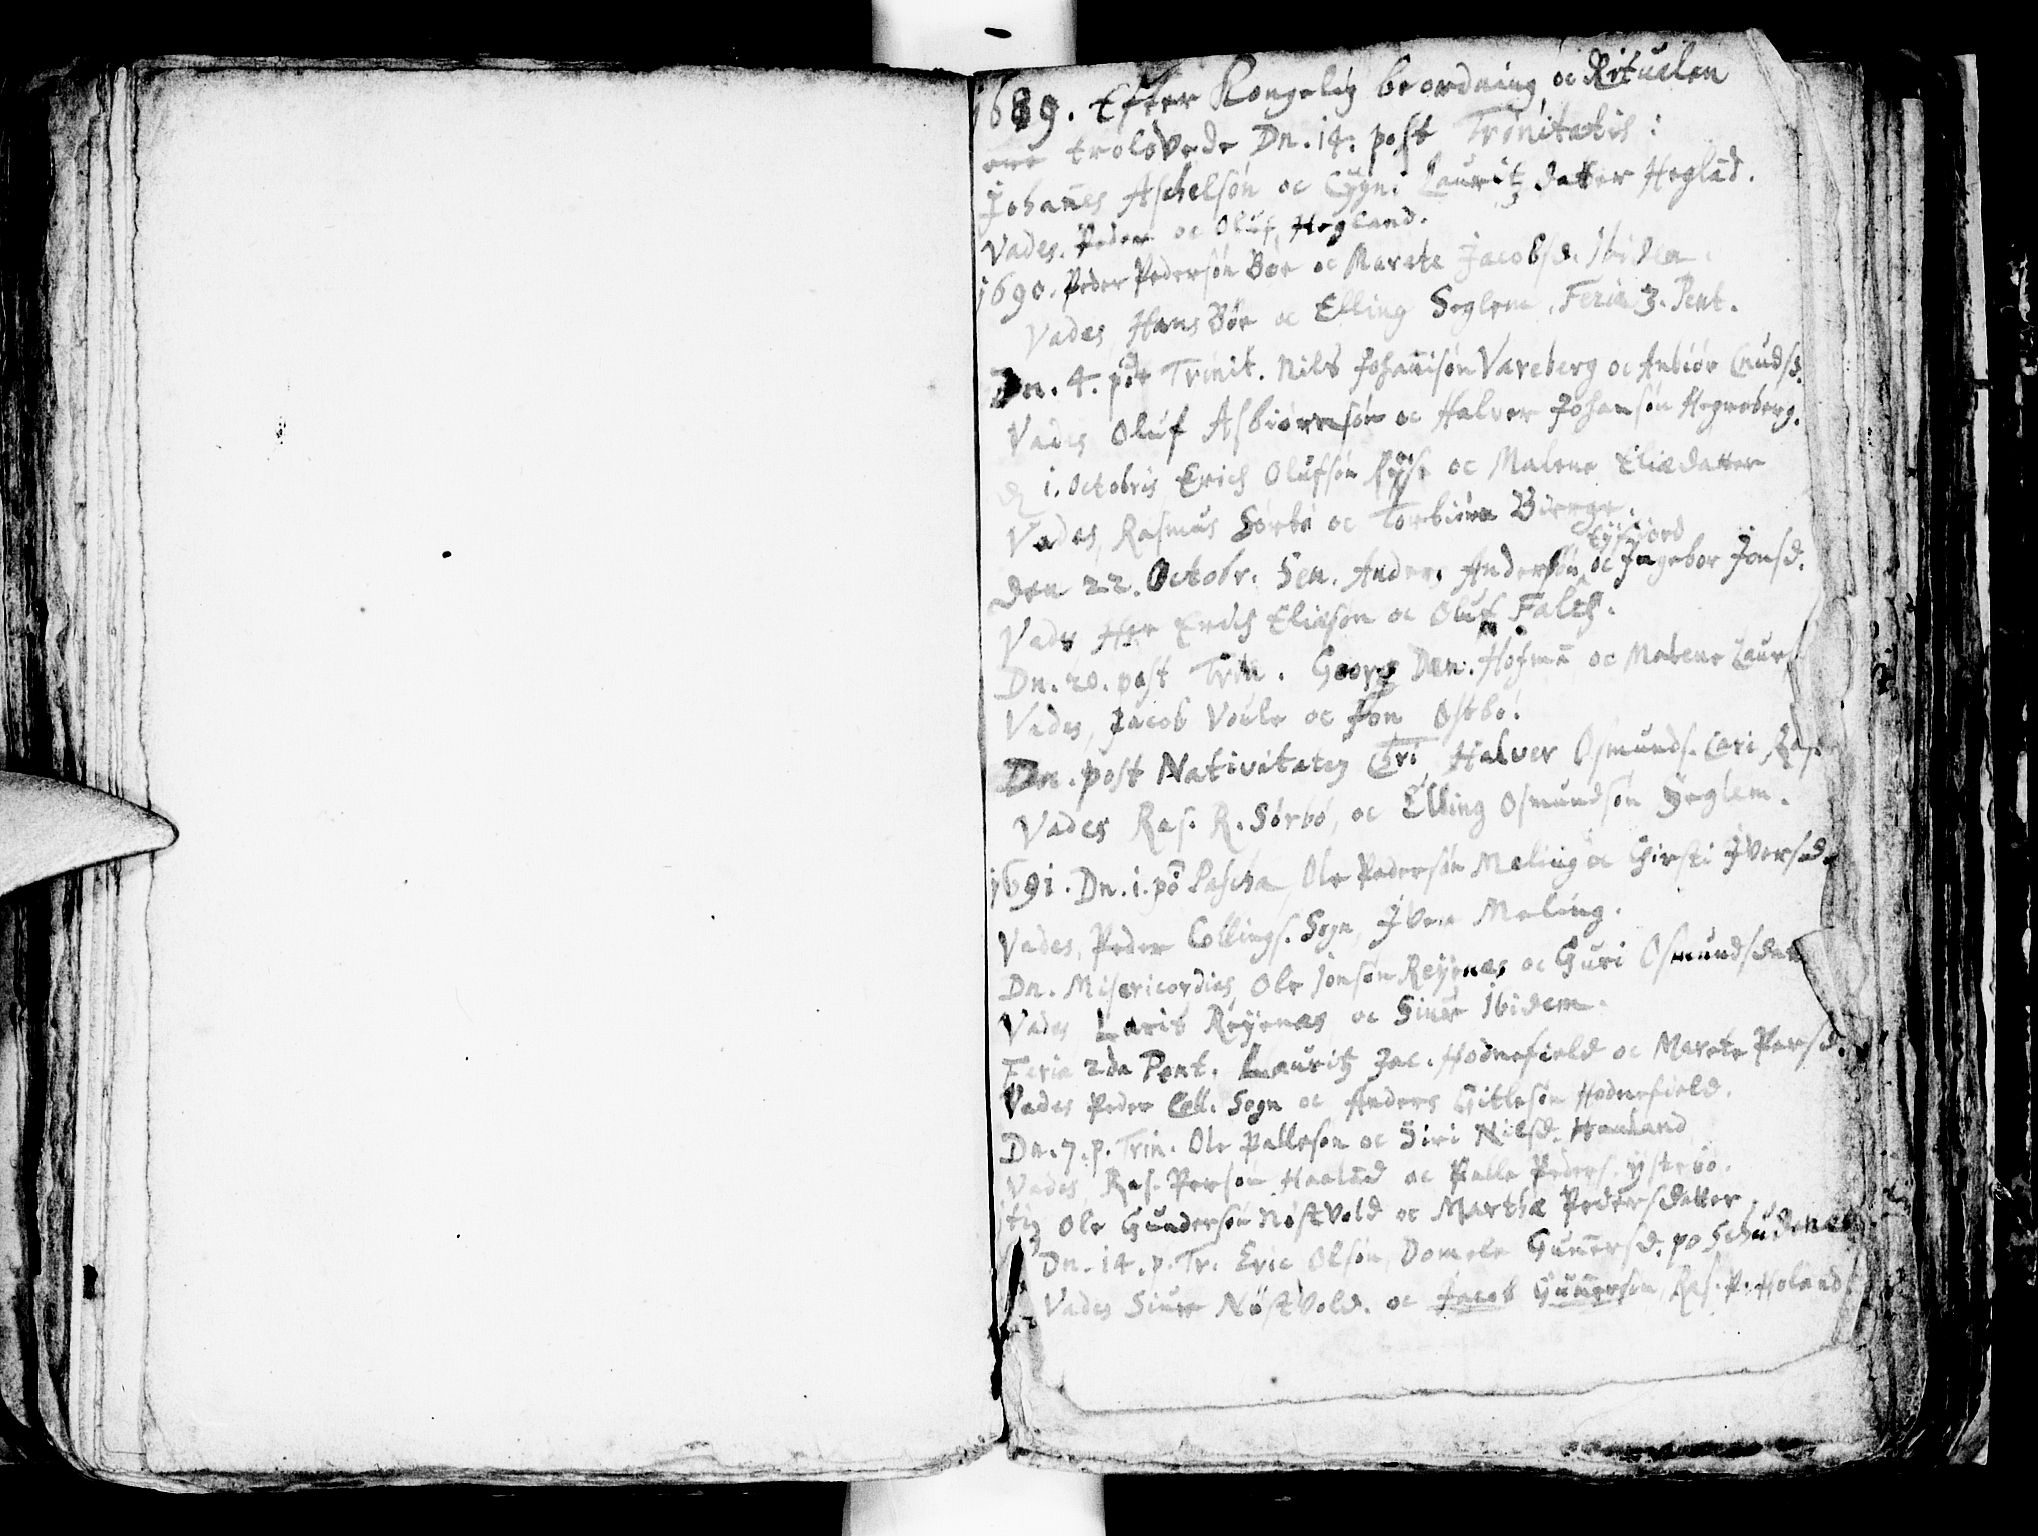 1689. Efter Kongelig beordning oc Ritualen
ere trolovede Dn. 14. post Trinitatis:
Johanes Aschelsøn oc Lauritz datter Hegläd.
Vades. Peder oc Oluf Hegland.
1690. Peder Pedersøn Bøe oc Marete Jacobsd. Ibidem.
Vades, Hans Bøe oc Elling Seglem, Feria 3. Pent.
Dn. 4. post Trinit. Nils Johanisøn Vareberg oc Anbiør Cnudsd.
Vades Oluf Asbiørnsøn oc Halver Johansøn Hegreberg.
d 1. Octobris Erich Olufsøn oc Malene Eliædatter
Vades, Rasmus Sørbø oc Torbiørn
Den 22. Octobr. Sen. Ander. Andersøn oc Ingebor Jonsd.
Vades Her Erich Eliæsøn oc Oluf Falch.
Dn. 20. post Trin. Georg Dan. Hofmā oc Malene Laurs
Vades, Jacob Voule oc Jon Ostbø.
Dn. post Nativitatem Chri Halver Osmunds. Cari Ras.
Vades Ras. R. Sørbø, oc Elling Osmundsøn Seglem.
1691. Dn. 1. po Pascha, Ole Pedersøn Meling oc Girsti Iversd.
Vades, Peder Collings. Sogn, Iver Meling.
Dn. Misericordias, Ole Jonsøn Reyenæs oc Guri Osmundsdatt
Vades Laris Reyenæs oc Siur Ibidem.
Feria 2da Pent. Lauritz Jac. Hodnefield oc Marete Persd.
Vades Peder Coll. Sogn oc Anders Gitlesøn Hodnefield.
Dn. 7. p. Trin. Ole Pallesøn oc Siri Nilsd. Haaland
Vades, Ras. Persøn Haaläd oc Palle Peders. Ystebø.
Ole Gundersøn Nøstvold oc Martha Pedersdatter
Dn. 14. p. Tr. Eric Olsøn, Domele Gunersd. po Schudenæs
Vades Siur Nøstvold. oc Jacob Gunersøn, Ras. P. Holand